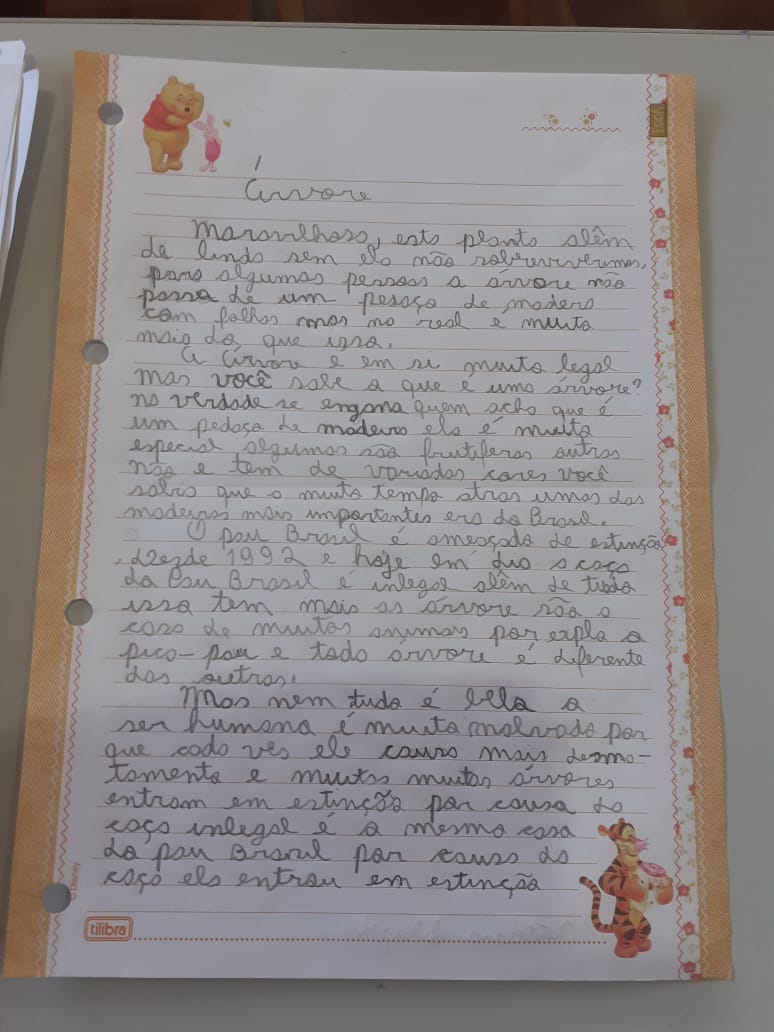 Árvore
Maravilhosa, esta planta alêm
de linda sem ela não sobreviverimos,
para algumas pessoas a árvore não
passa de um pesaço de madera
com folhas mas na real é muito
mais do, que isso.
A Árvore e em si muito legal
mas você sabe o que e uma árvore?
na verdade se engana quem acha que é
um pedaço de madeira ela é muito
especial algumas são frutiferas outras
não e tem de variadas cores você
sabia que a muito tempo atras umas das
madeiras mais importantes era do Brasil.
O pau Brasil é ameaçado de estinção
, dezde 1992 e hoje em dia a caça
do Pau Brasil é inlegal alêm de tudo
isso tem mais as árvore são a
casa de muitos animais por explo o
pico-pau e toda árvore é diferente
das outras.
Mas nem tudo é belo o
ser humano é muito malvado por
que cada ves ele causa mais desma-
tamento e muitas muitas árvores
entram em estinção por causa da
caça inlegal é a mesma cosa
do pau Brasil por causa da
caça ela entrou em estinção
© Disney
tilibra